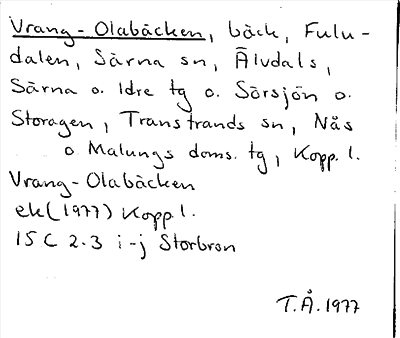 Vrang-Olabäcken, bäck, Fulu-
dalen, Särna sn, Älvdals,
Särna o. Idre tg o. Sörsjön o.
Storagen, Transtrands sn, Nås
o Malungs doms. tg, Kopp. l.
Vrang-Olabäcken
ek (1977) Kopp l.
15 C 2-3 i-j Storbron
T.Å. 1977